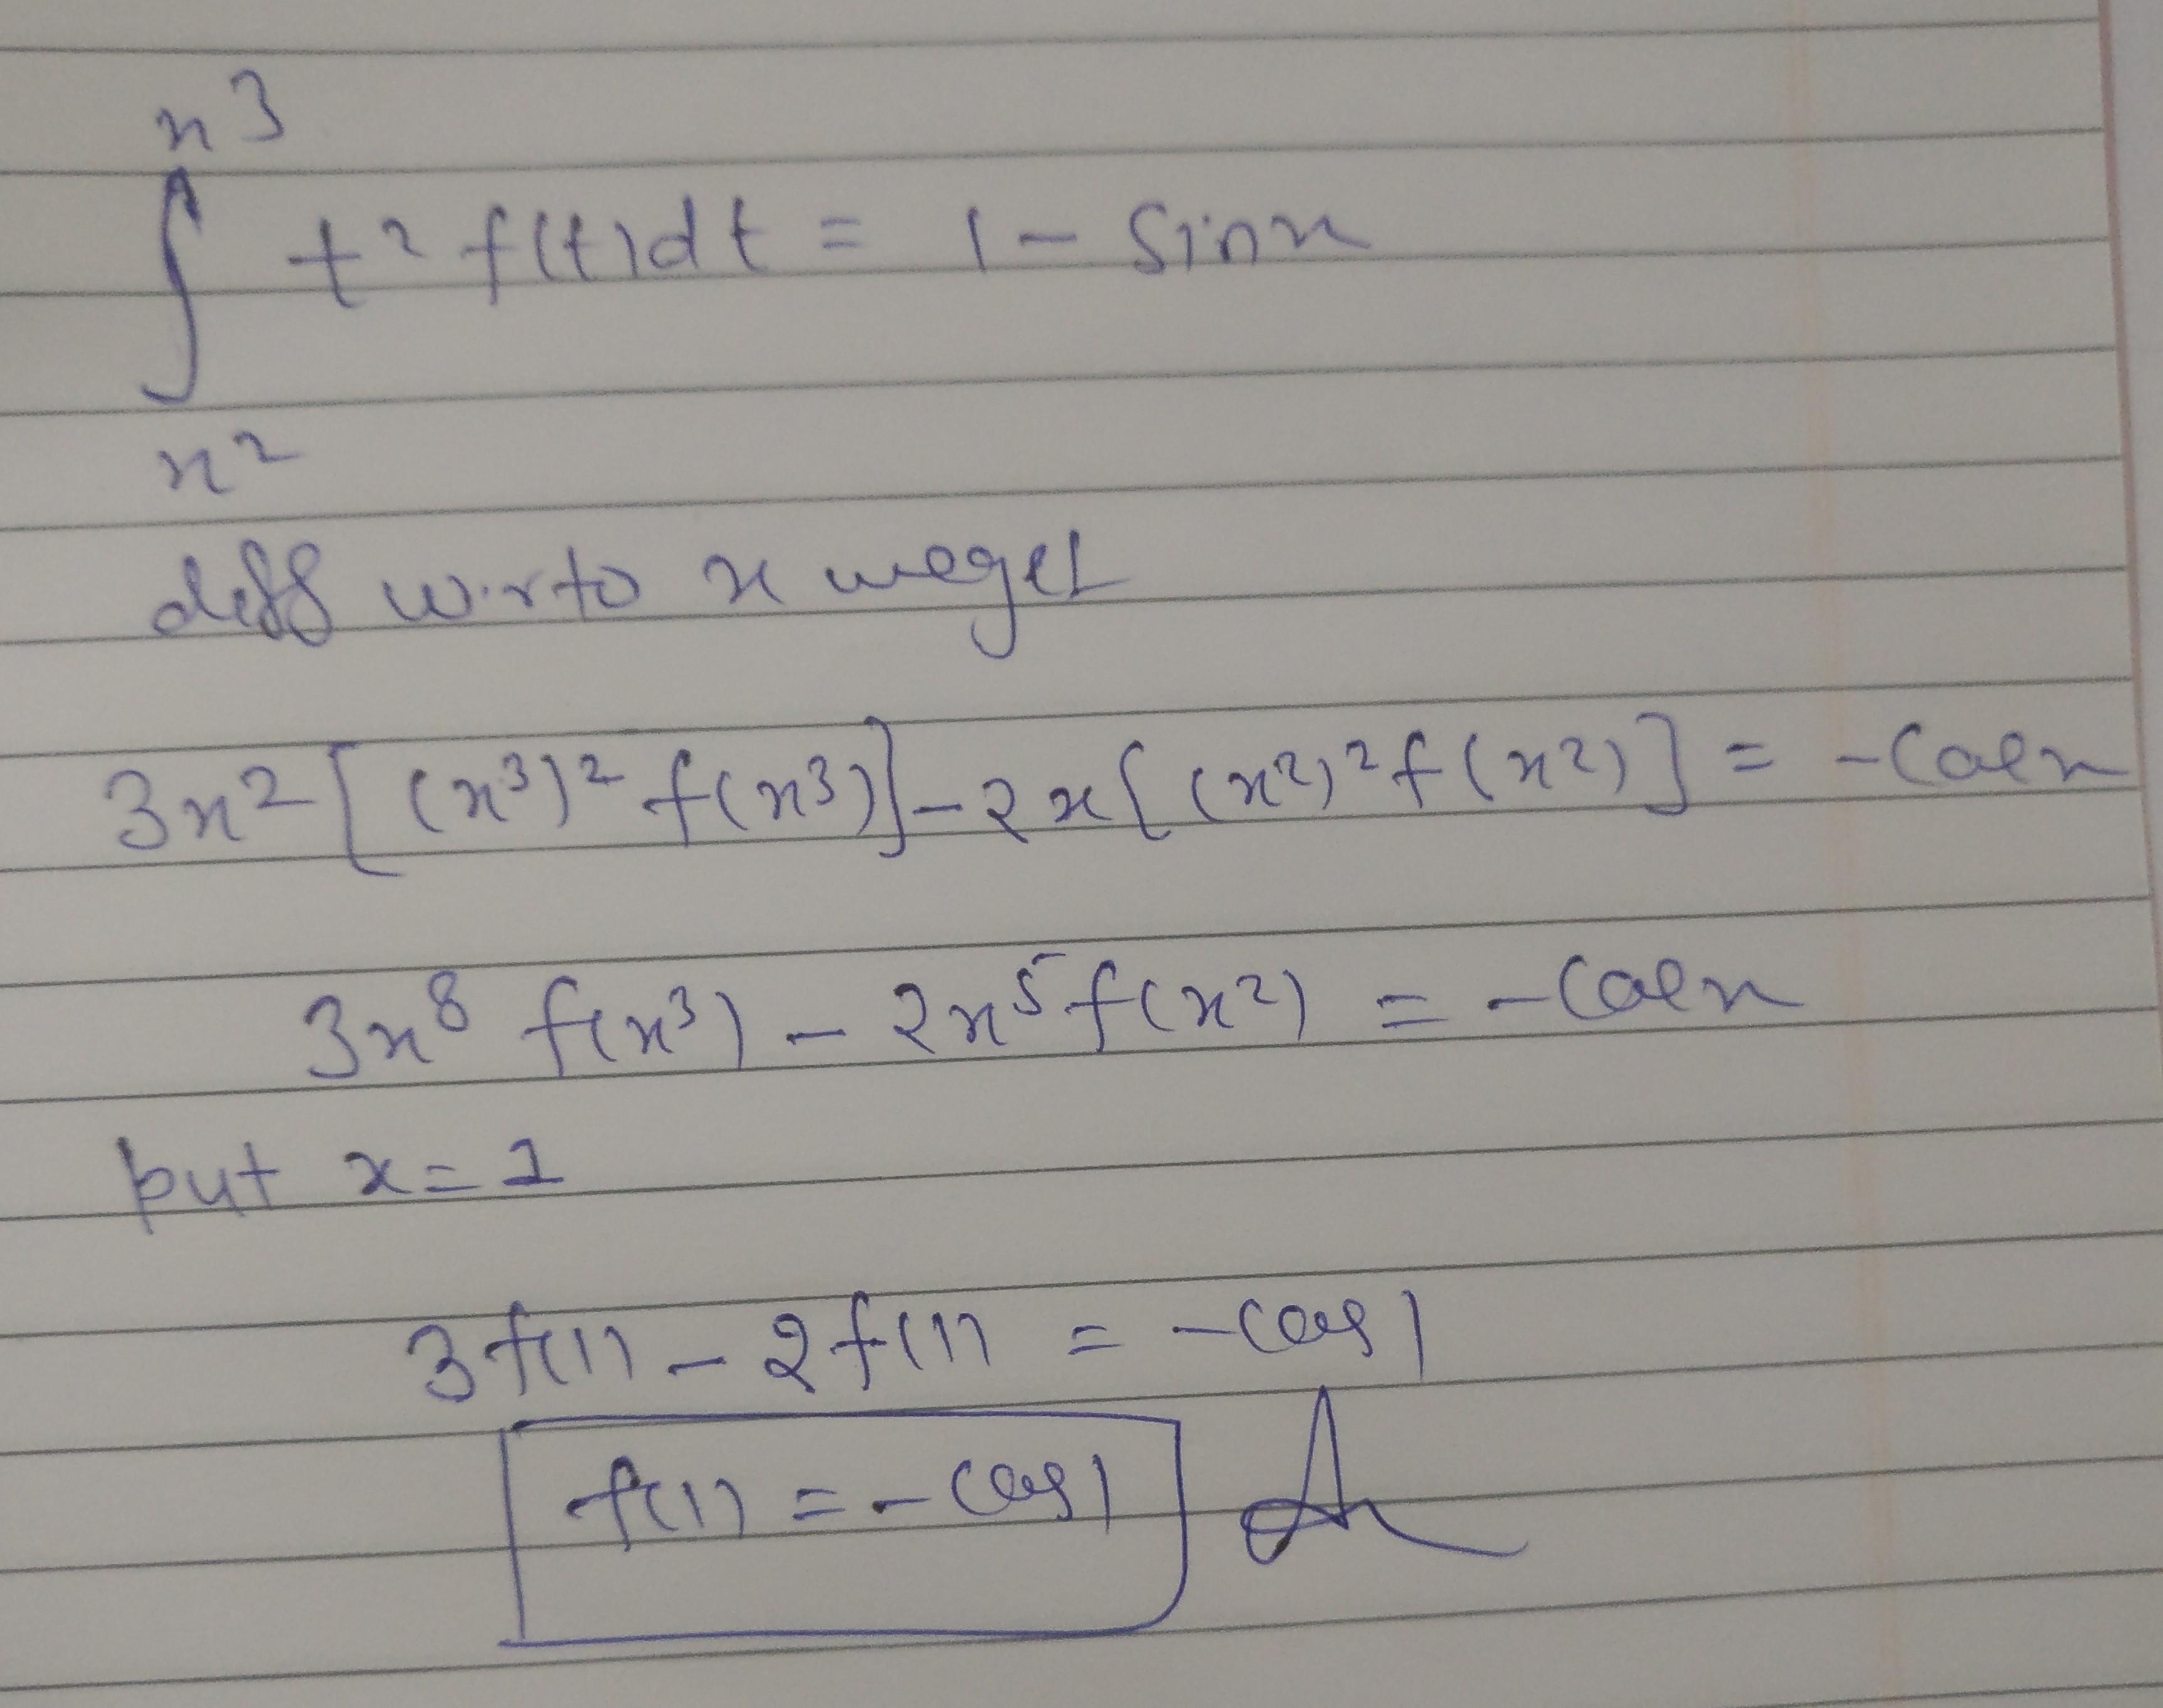 ∫_{x²}^{x³} t² f(t)dt = 1 - Sinx
diff w.r to x we get
3x² [(x³)² f(x³)] - 2x [(x²)² f(x²)] = -Cosx
3x⁸ f(x³) - 2x⁵ f(x²) = -Cosx
put x = 1
3f(1) - 2f(1) = -Cos1
f(1) = -Cos1